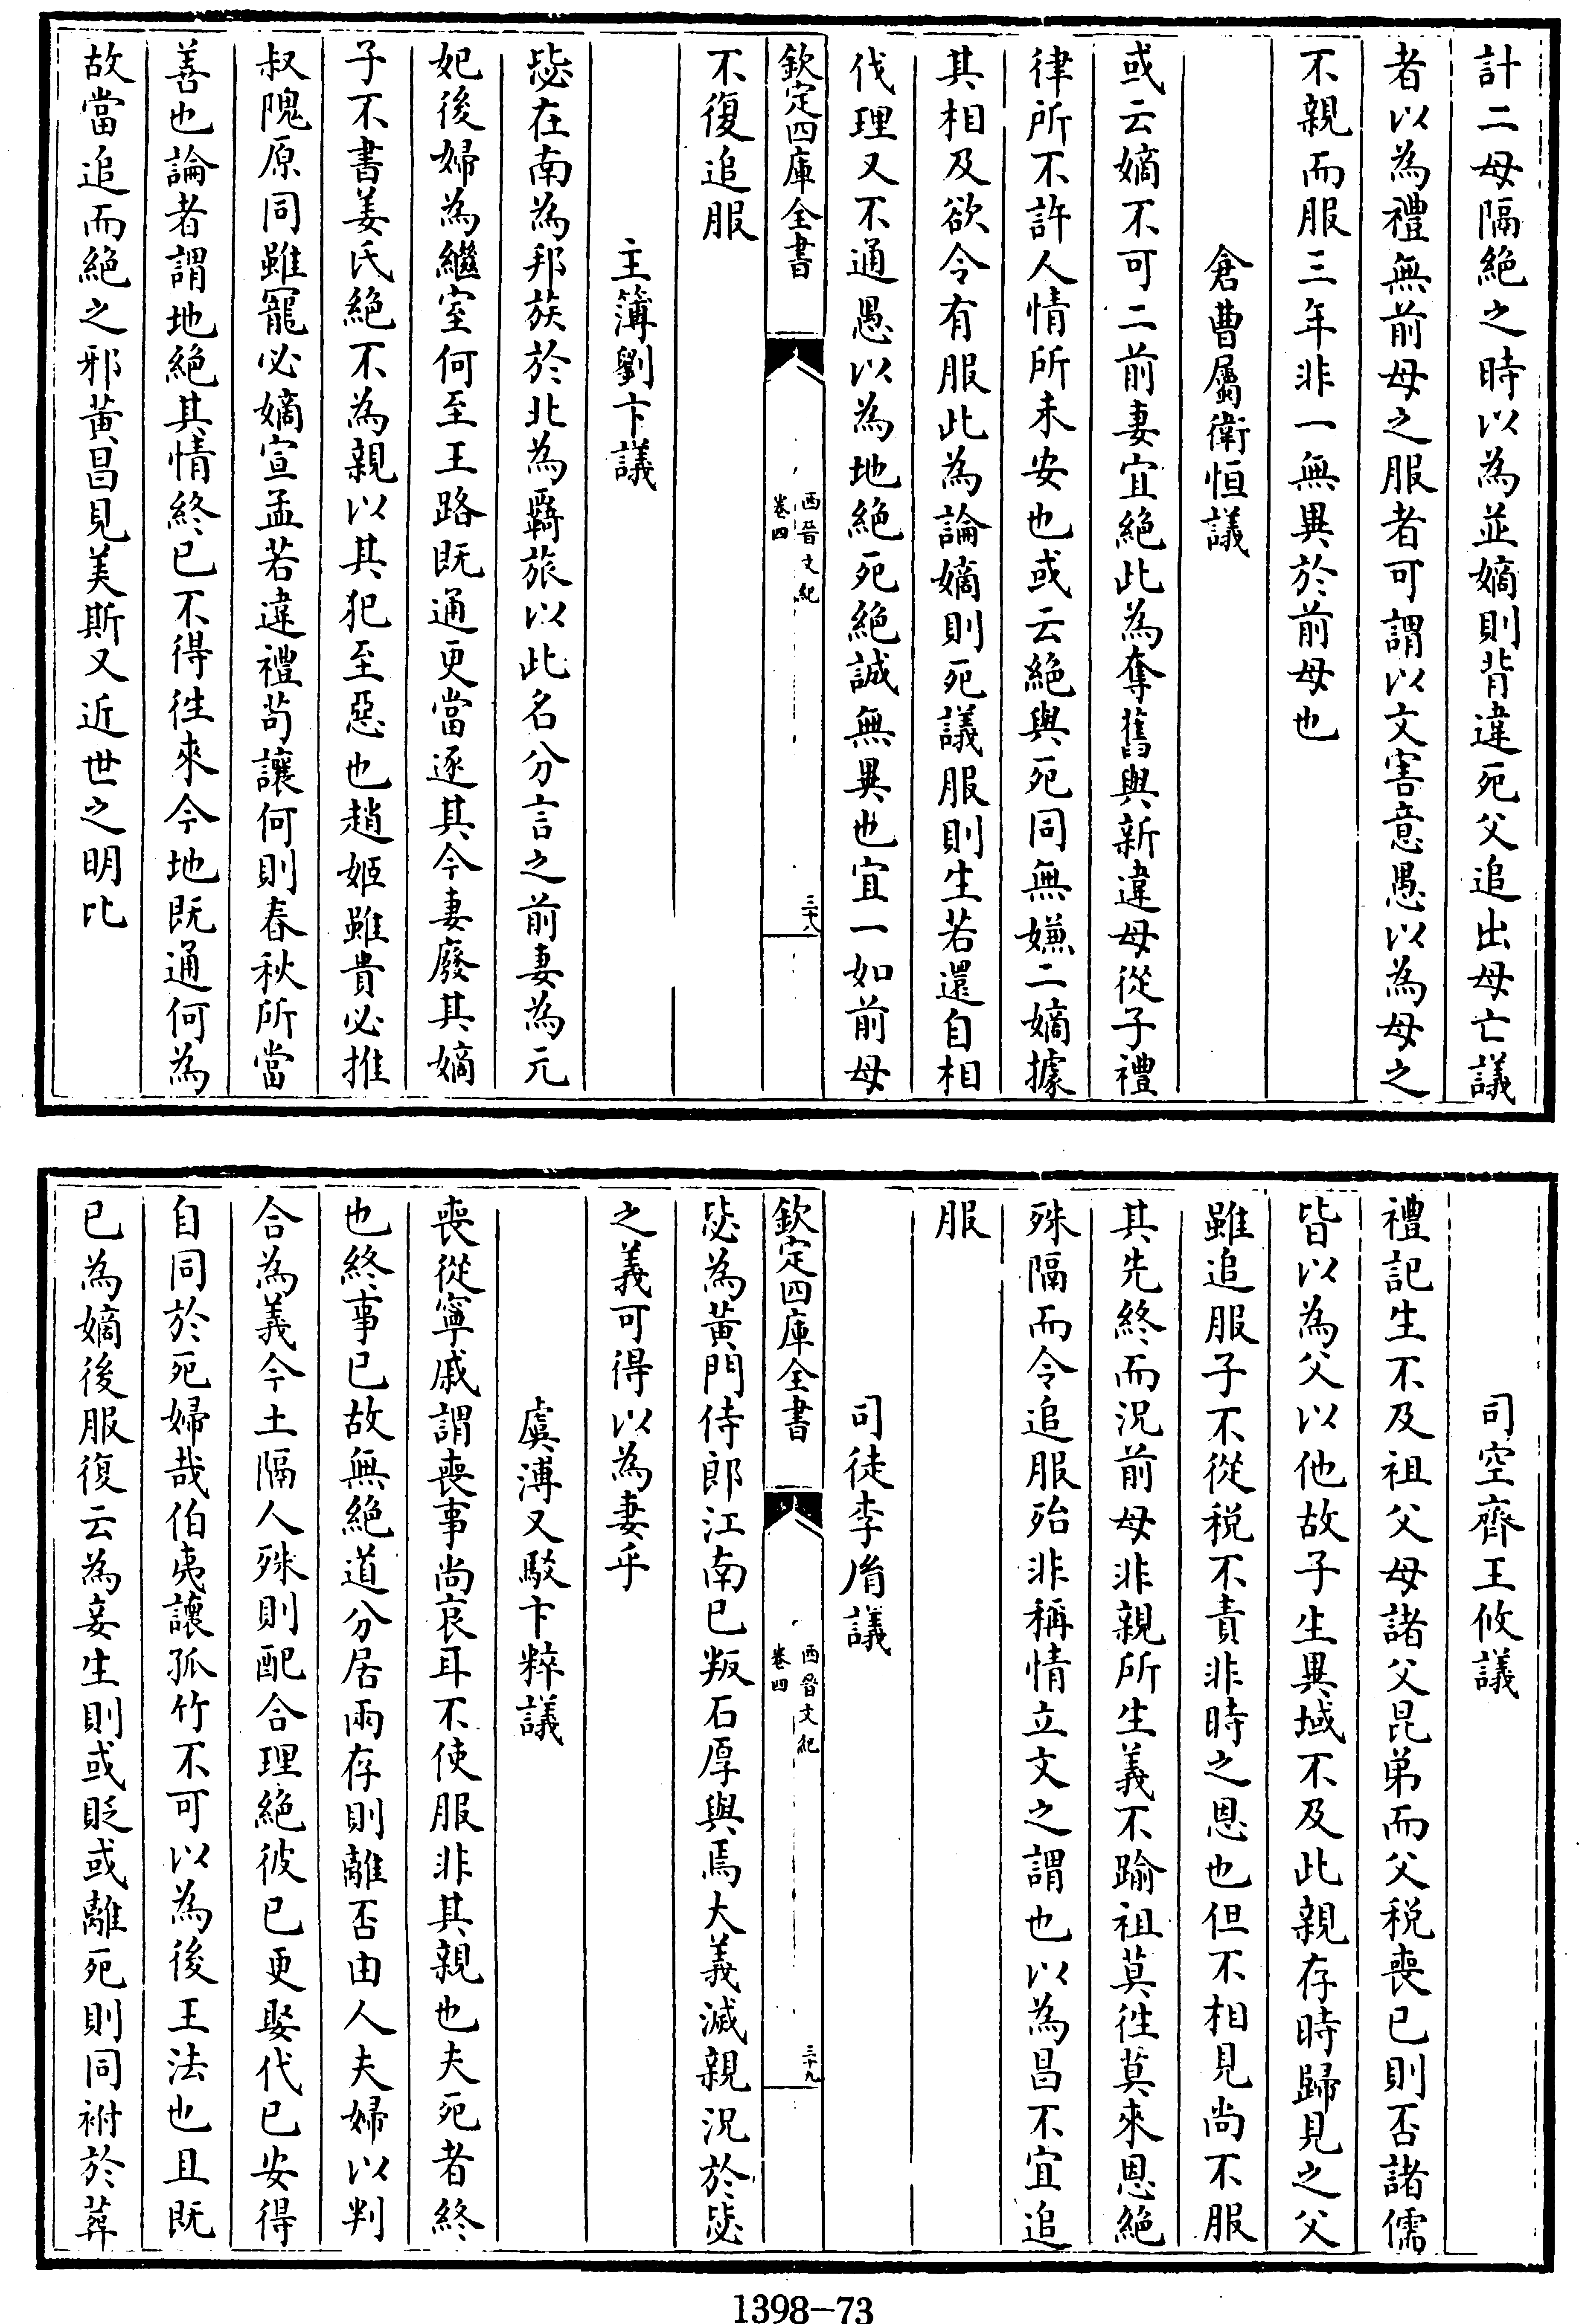 計二母隔絶之時以為並嫡則背違死父追出母亡議
者以為禮無前母之服者可謂以文害意愚以為母之
不親而服三年非一無異於前母也
倉曹屬衛恒議
或云嫡不可二前妻宜絶此為奪舊與新違母從子禮
律所不許人情所未安也或云絶與死同無嫌二嫡據
其相及欲令有服此為論嫡則死議服則生若還自相
伐理又不通愚以為地絶死絶誠無異也宜一如前母
欽定四庫全書
西晉文紀
卷四
三十八
不復追服
主簿劉卞議
毖在南為邦族於北為羇旅以此名分言之前妻為元
妃後婦為繼室何至王路既通更當逐其今妻廢其嫡
子不書姜氏絶不為親以其犯至惡也趙姬雖貴必推
叔隗原同雖寵必嫡宣孟若違禮茍讓何則春秋所當
善也論者謂地絶其情終已不得徃來今地既通何為
故當追而絶之邪黃昌見美斯又近世之明比
司空齊王攸議
禮記生不及祖父母諸父昆弟而父稅喪已則否諸儒
皆以為父以他故子生異域不及此親存時歸見之父
雖追服子不從稅不責非時之恩也但不相見尚不服
其先終而況前母非親所生義不踰祖莫徃莫來恩絶
殊隔而令追服殆非稱情立文之謂也以為昌不宜追
服
司徒李胤議
欽定四庫全書
西晉文紀
卷四
三十九
毖為黃門侍郎江南已叛石厚與焉大義滅親況於毖
之義可得以為妻乎
虞溥又駁卞粹議
喪從寧戚謂喪事尚哀耳不使服非其親也夫死者終
也終事已故無絶道分居兩存則離否由人夫婦以判
合為義今土隔人殊則配合理絶彼已更娶代已安得
自同於死婦哉伯夷讓孤竹不可以為後王法也且既
已為嫡後服復云為妾生則或貶或離死則同祔於葬
1398-73